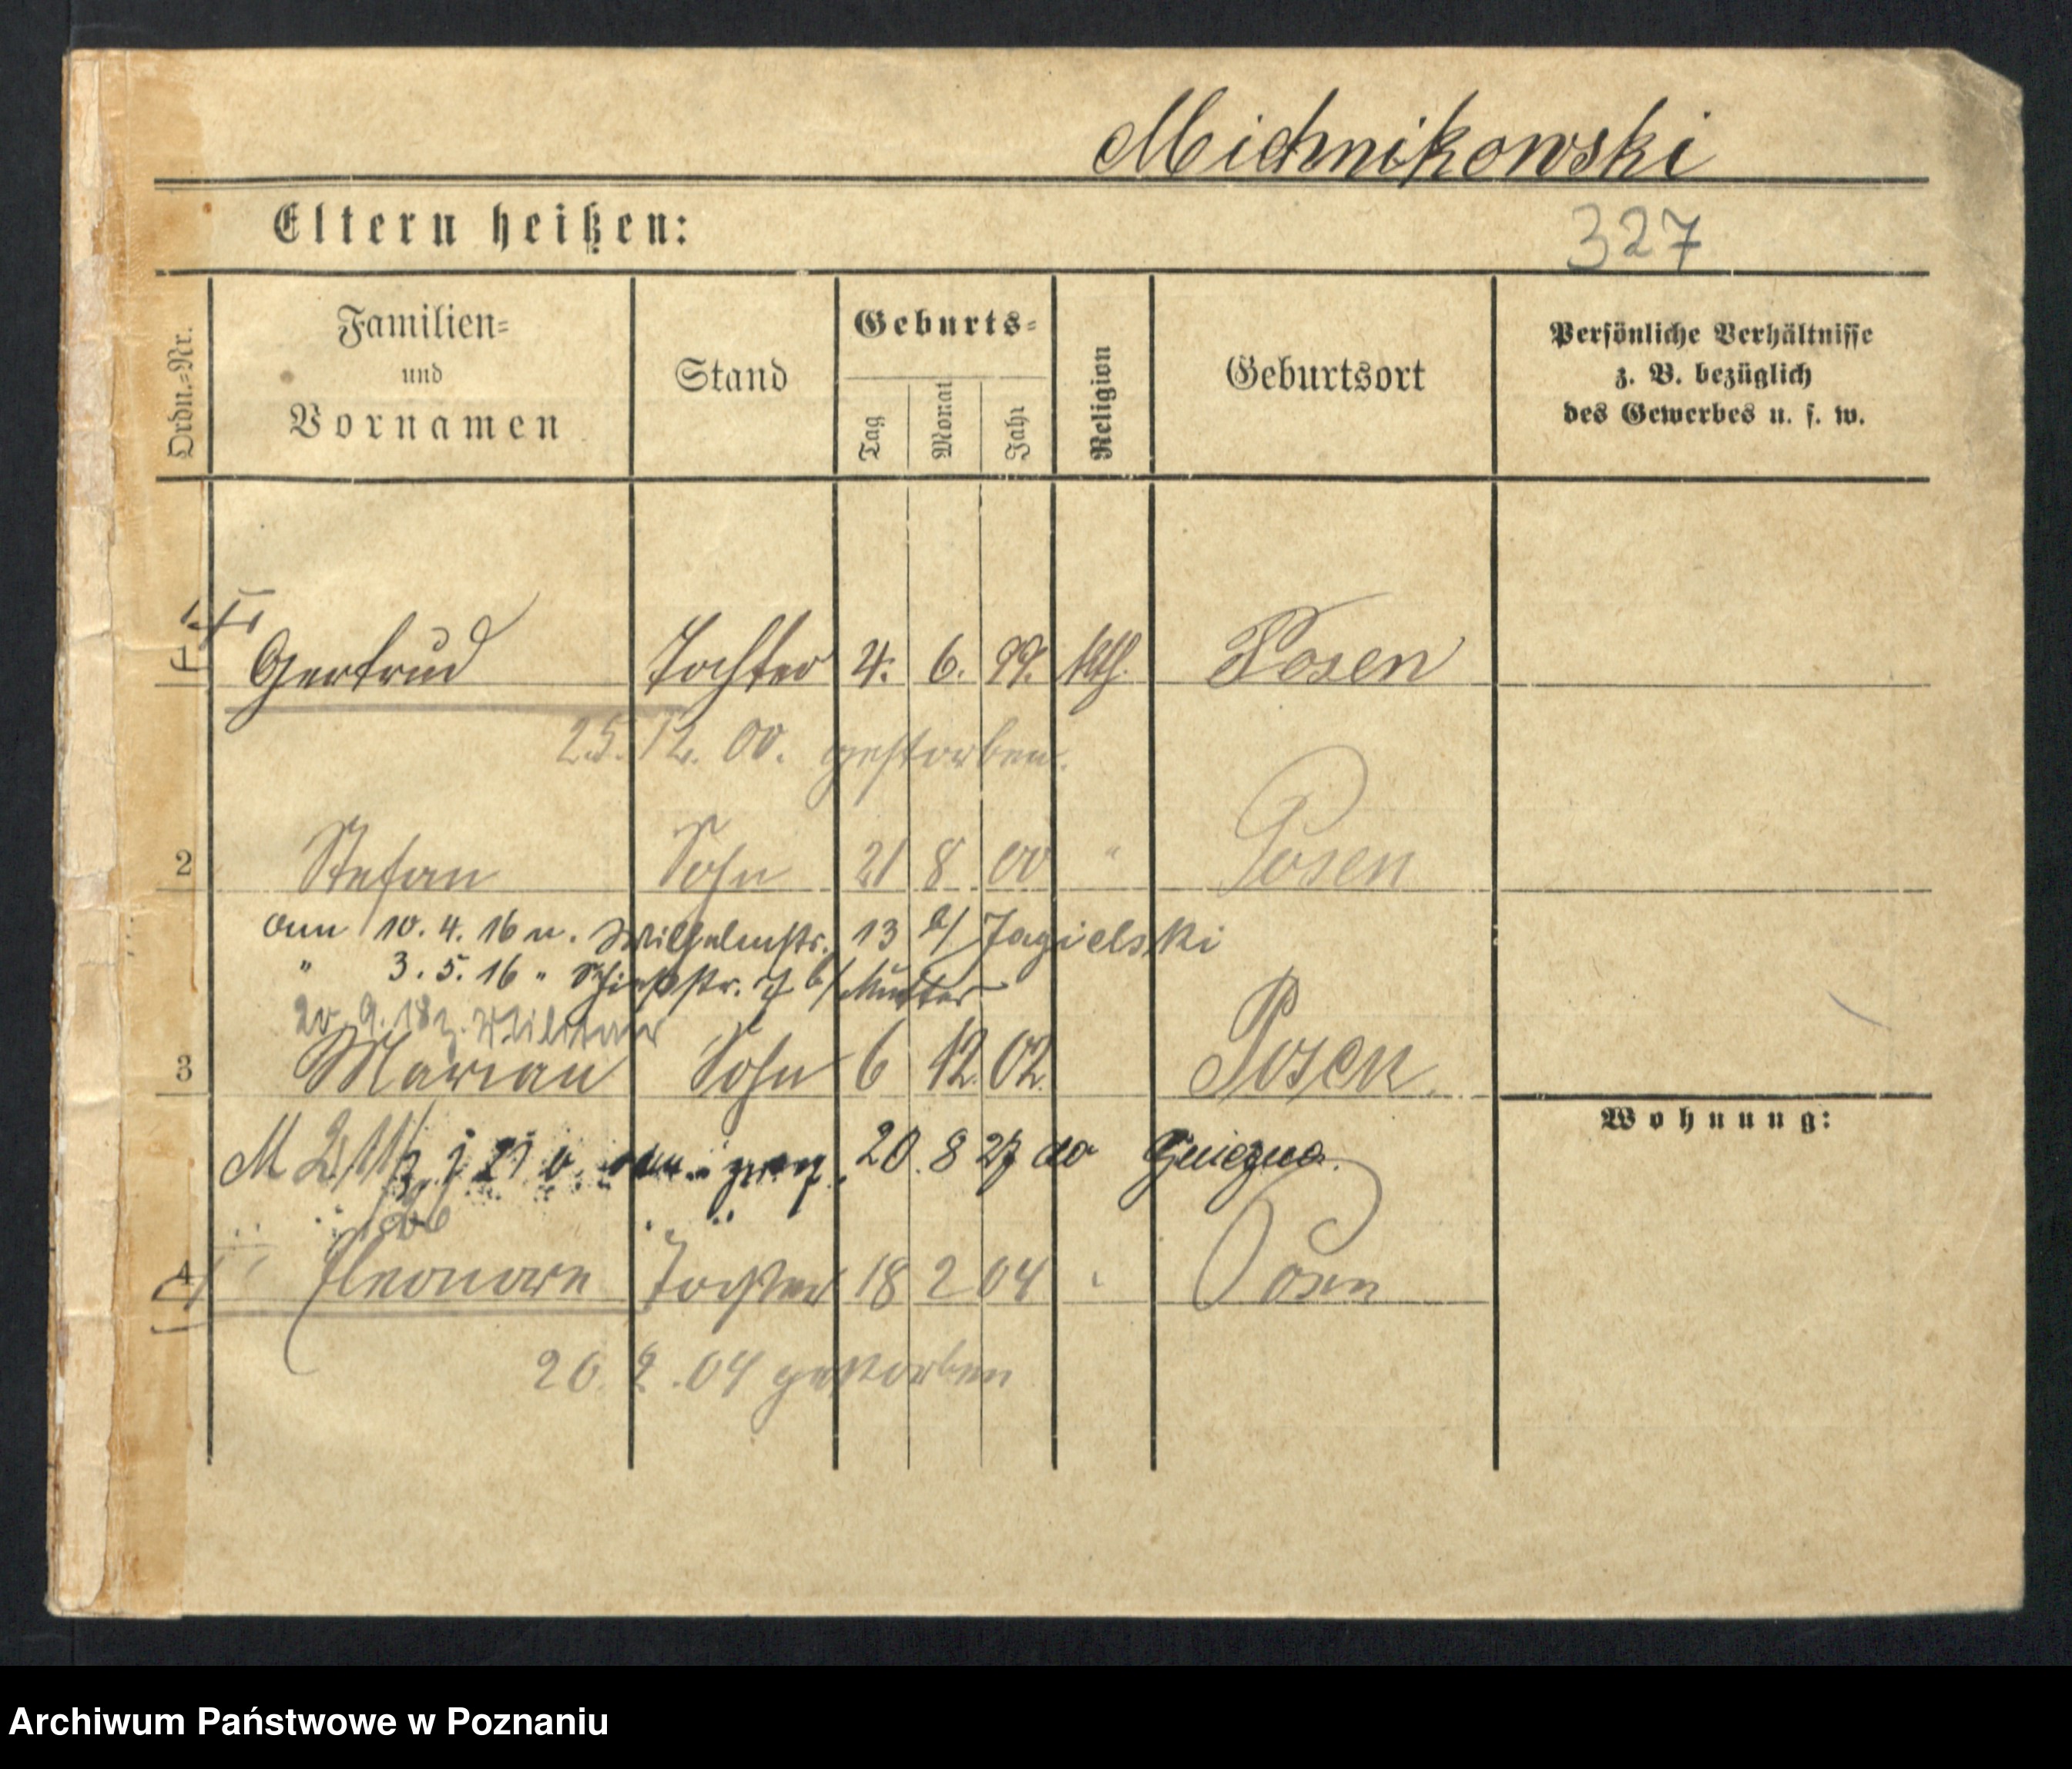 Michnikowski
Eltern heißen:
327
Ordn.=Nr.
Familien=
und
Vornamen
Stand
Geburts=
Tag
Monat
Jahr
Religion
Geburtsort
Persönliche Verhältnisse
z. B. bezüglich
des Gewerbes u. s. w.
Gertrud Tochter 4. 6. 99. kth. Posen
25. 12. 00. gestorben.
2 Stefan Sohn 21 8 00 " Posen
am 10. 4. 16 n. Wilhelmstr. 13 b/ Jagielski
" 3. 5. 16 " Schießstr. 7 b/ Mutter
20. 9. 18 z. Militär
3 Marian Sohn 6 12. 02. Posen.
Wohnung:
20. 8 27 do Gniezna.
4 Eleonore Tochter 18 2 04 Posen
20. 2. 04 gestorben
Archiwum Państwowe w Poznaniu